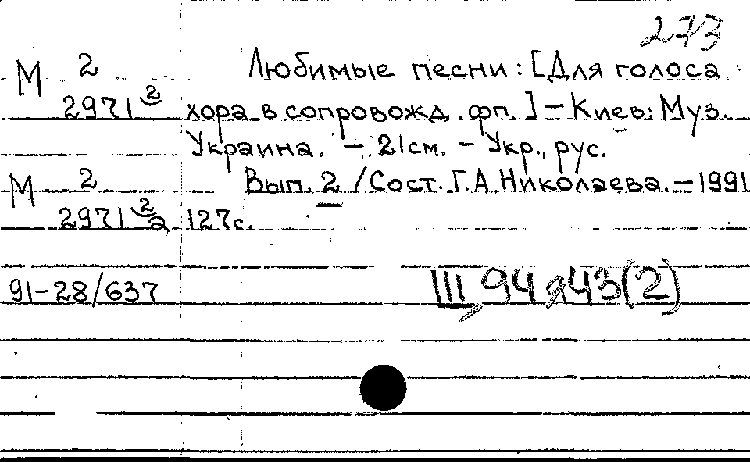 273
М 2 Любимые песни: [Для голоса
2971 2 хора в сопровожд. фп.] – Киев: Муз.
Украина. – 21см. – Укр., рус.
М 2 Вып. 2 / Сост. Г.А Николаева. – 1991
2971 2а 127с.
91-28/637 III, 94 я43(2)